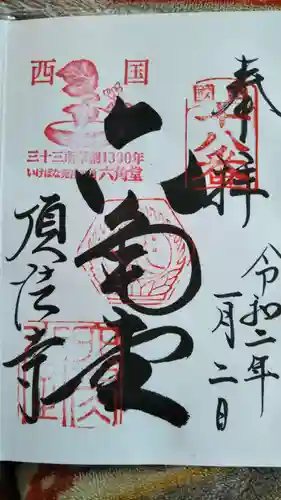 奉拝
令和二年
一月二日
六角堂
頂法寺
西国
三十三所草創1300年
いけばな発祥の地 六角堂
西國十八番